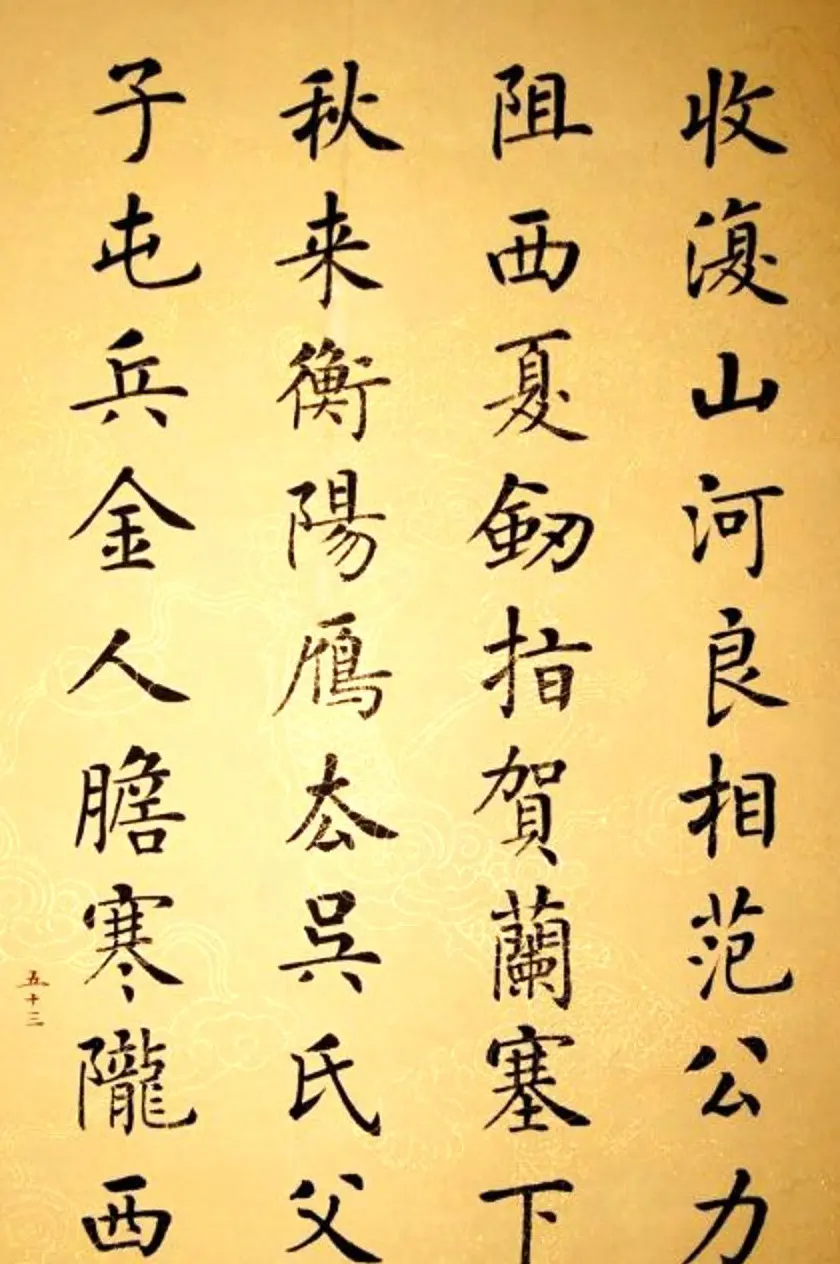 收復山河良相范公力
阻西夏劒指賀蘭塞下
秋来衡陽鴈厺吳氏父
子屯兵金人膽寒隴西
五十三